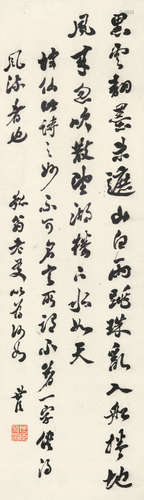 黑雲翻墨未遮山白雨跳珠亂入船捲地
風來忽吹散望湖樓下水如天
坡仙此詩之妙不可名言所謂不著一字儘得
風流者也
翁老
以為何如